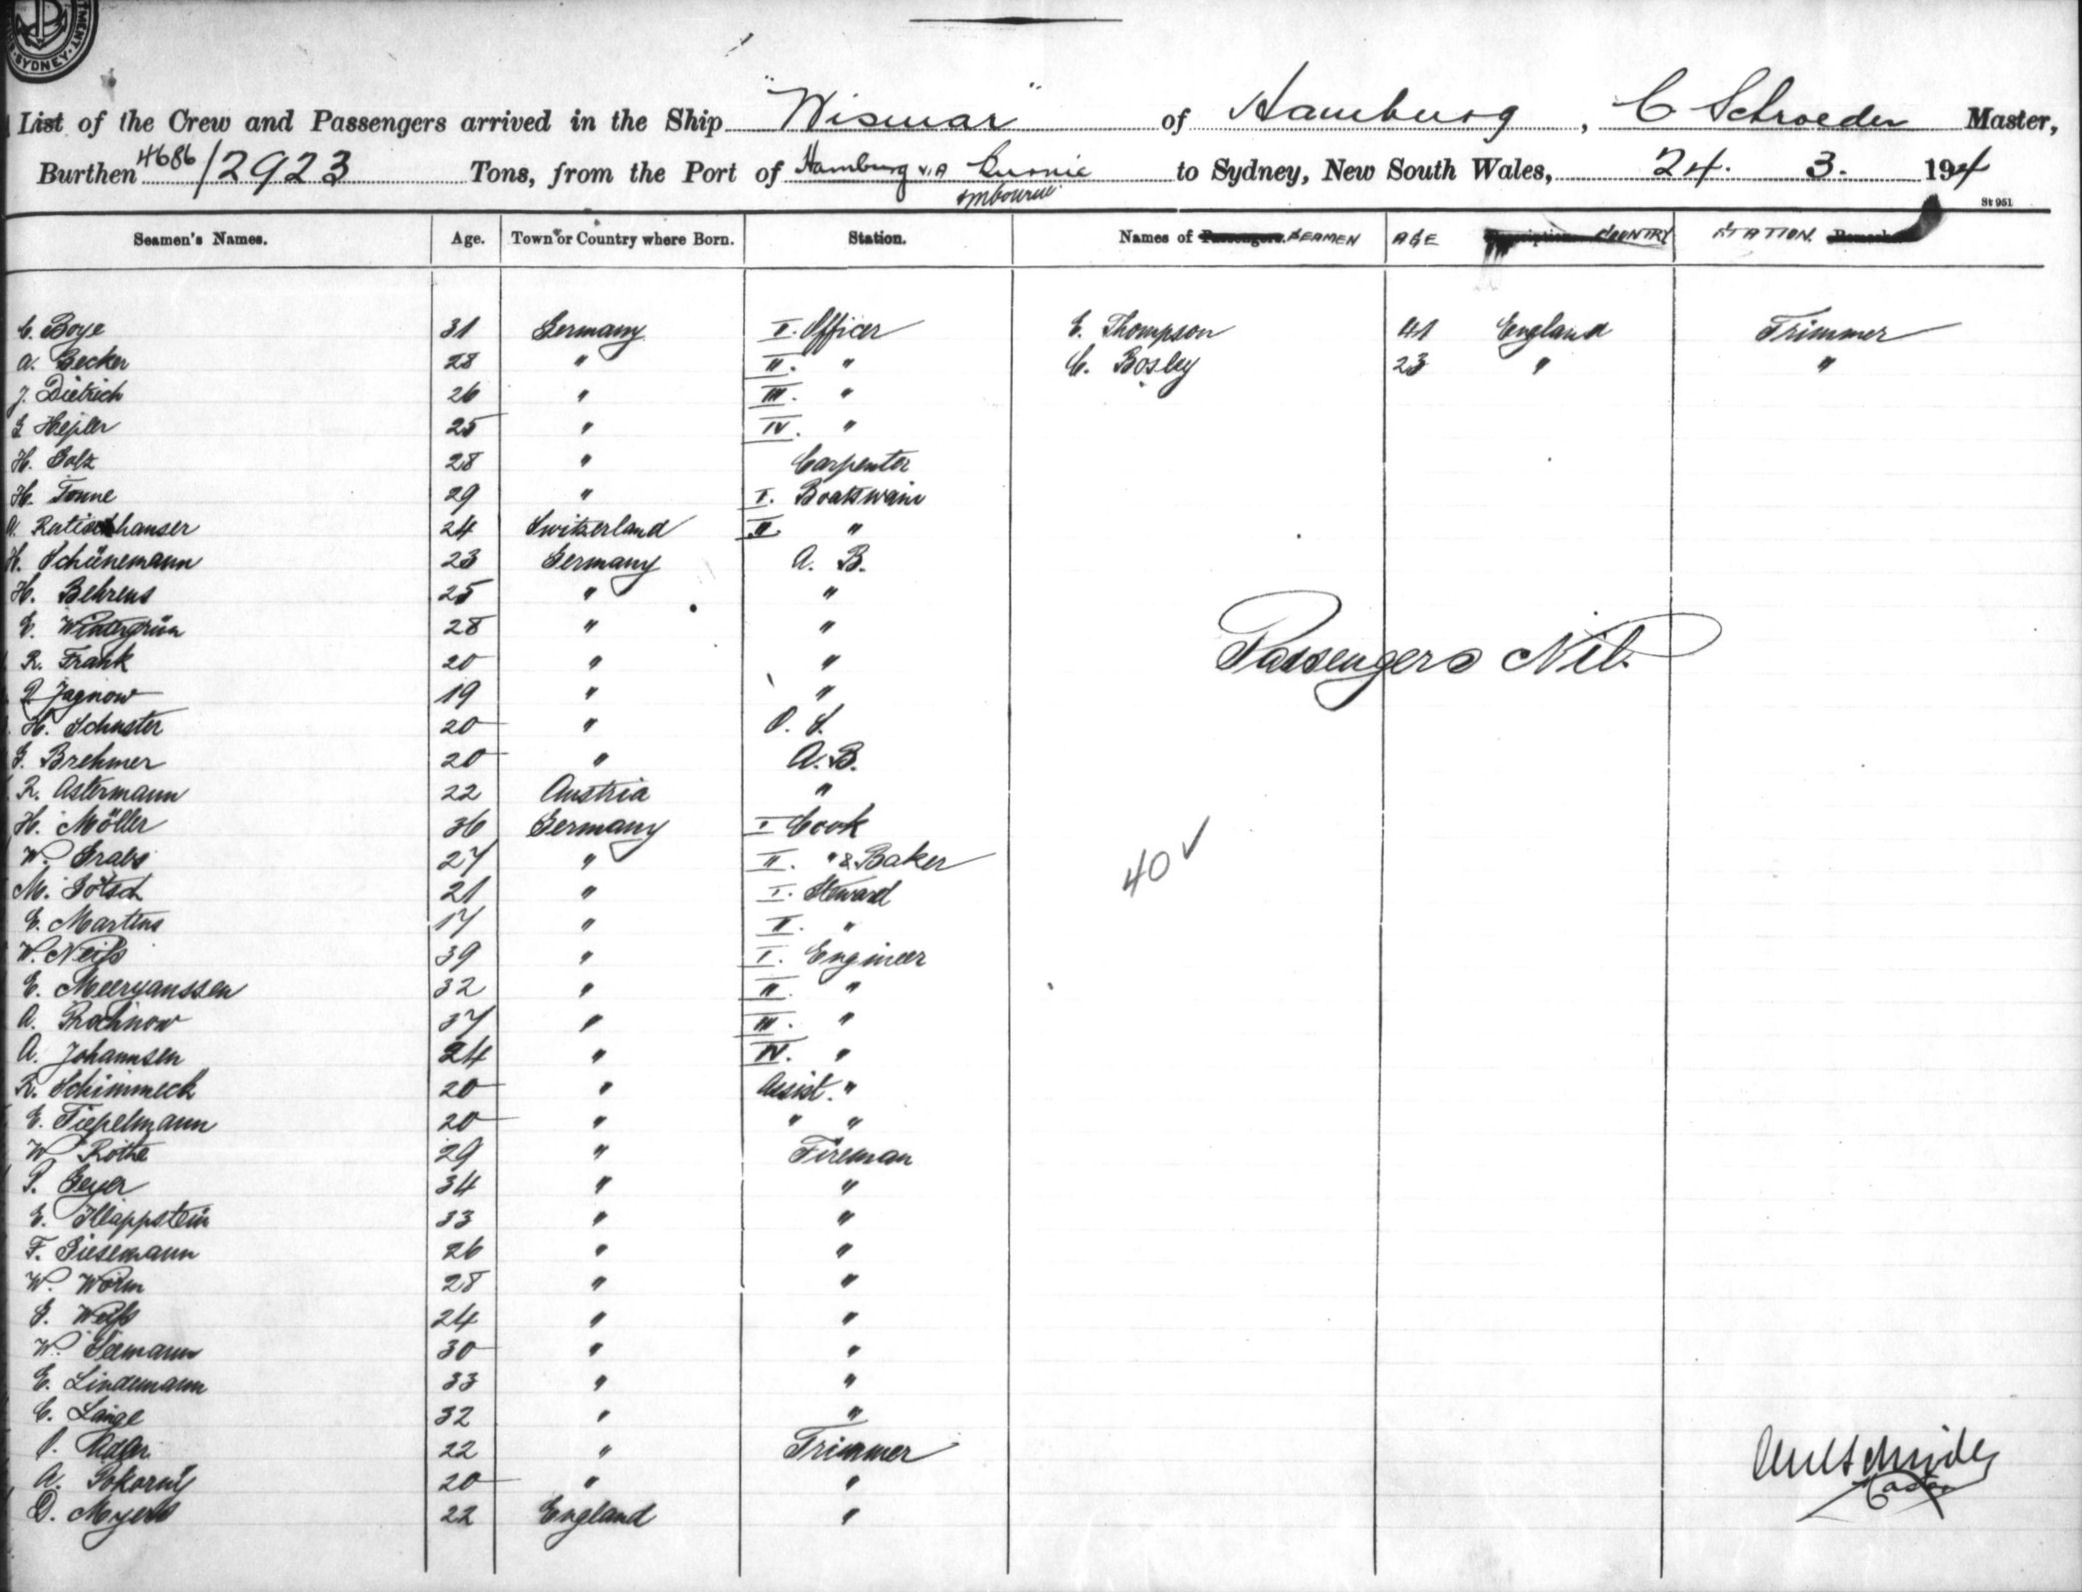 SYDNEY
List of the Crew and Passengers arrived in the Ship "Wismar" of Hamburg, C Schroeder Master,
Burthen 4686/2923 Tons, from the Port of Hamburg via Burnie to Sydney, New South Wales, 24. 3. 1914
St 951
Seamen's Names. Age. Town or Country where Born. Station. Names of Passengers. SEAMEN AGE COUNTRY STATION Remarks
C. Boye 31 Germany II. Officer E. Thompson 41 England Trimmer
A. Becker 28 " II. " C. Bosley 23 " "
J. Dietrich 26 " III. "
G. Hepler 25 " IV. "
H. Golz 28 " Carpenter
H. Tonne 29 " I. Boatswain
A. 24 Switzerland II. "
H. Schünemann 23 Germany A. B.
H. Behrens 25 " "
E. Wintergrün 28 " "
R. Frank 20 " "
Passengers Nil.
P. Jagnow 19 " "
H. Schuster 20 " O. S.
G. Brehmer 20 " A. B.
R. Astermann 22 Austria "
H. Möller 36 Germany I Cook
W. Grabs 27 " II. " & Baker
40 ✓
M. Götsch 21 " I. Steward
E. Martens 17 " II. "
W. Neiß 39 " I. Engineer
E. Meeryanssen 32 " II. "
A. Prochnow 37 " III. "
A. Johannsen 24 " IV. "
R. Schimmeck 20 " Assist. "
E. Tiepelmann 20 " " "
W. Rothe 29 " Fireman
P. Geyer 34 " "
E. Klappstein 33 " "
F. Giesemann 26 " "
W. Worm 28 " "
G. Weiß 24 " "
W. Seemann 30 " "
E. Lindemann 33 " "
C. Lange 32 " "
P. Adler 22 " Trimmer
A. Pokorny 20 " "
D. Myers 22 England "